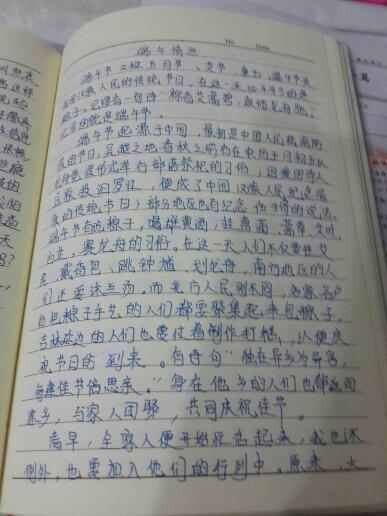 No. Date
端午情思
端午节又称五月节、艾节、重五、端午节是
汉族人民的传统节日，在这一天必不可少的是
粽子。记得有一句诗"粽有艾蒿翠，鼓催龙舟驰。"
记录的就是端午节。
端午节起源于中国，最初是中国人民祛病防
疫的节日，吴越之地春秋之前有在农历五月初五以
龙舟竞渡形式举行部落祭祀的习俗，因爱国诗人
屈原投汨罗江，便成了中国汉族人民纪念屈
原的传统节日；部分地区也有纪念伍子胥的说法。
端午节有吃粽子，喝雄黄酒，挂菖蒲、蒿草、艾叶，
白芷，赛龙舟的习俗。在这一天人们不仅要拴艾
草、戴香包、跳钟馗、划龙舟，南方地区的人
们还要沐兰汤。而北方人民则不同，各家各户
包粽子手艺的人们都要聚集起来包粽子，
吉林延边的人们也要忙着制作打糕，以便庆
祝节日的到来。有诗句"独在异乡为异客，
每逢佳节倍思亲。"身在他乡的人们也都返回
家乡，与家人团聚，共同庆祝佳节。
清早，全家人便开始忙活起来，我也不
例外，也要加入他们的行列中。原来，大